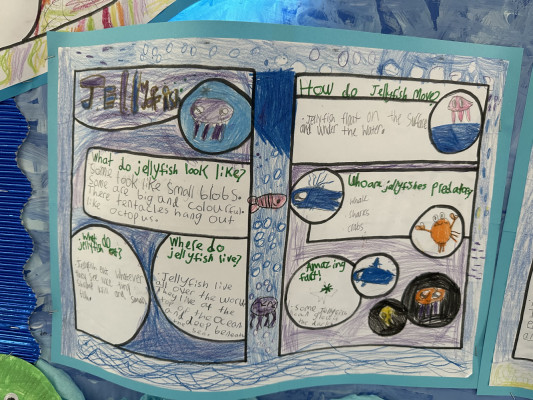 Jellyfish
What do jellyfish look like?
Some look like small blobs.
Some are big and colourful.
There tentacles hang out
like octopus.
What do
jellyfish eat?
Jellyfish eat whatever
they see like
and small
Where do
jellyfish live?
Jellyfish live
all over the world
They live at the
top
and the ocean
deep beneath
sea.
How do Jellyfish Move?
.Jellyfish float on the surface
and under the water.
Who are jellyfishes predators?
whale
sharks
crabs
Amazing
fact!
some jellyfish
the dark